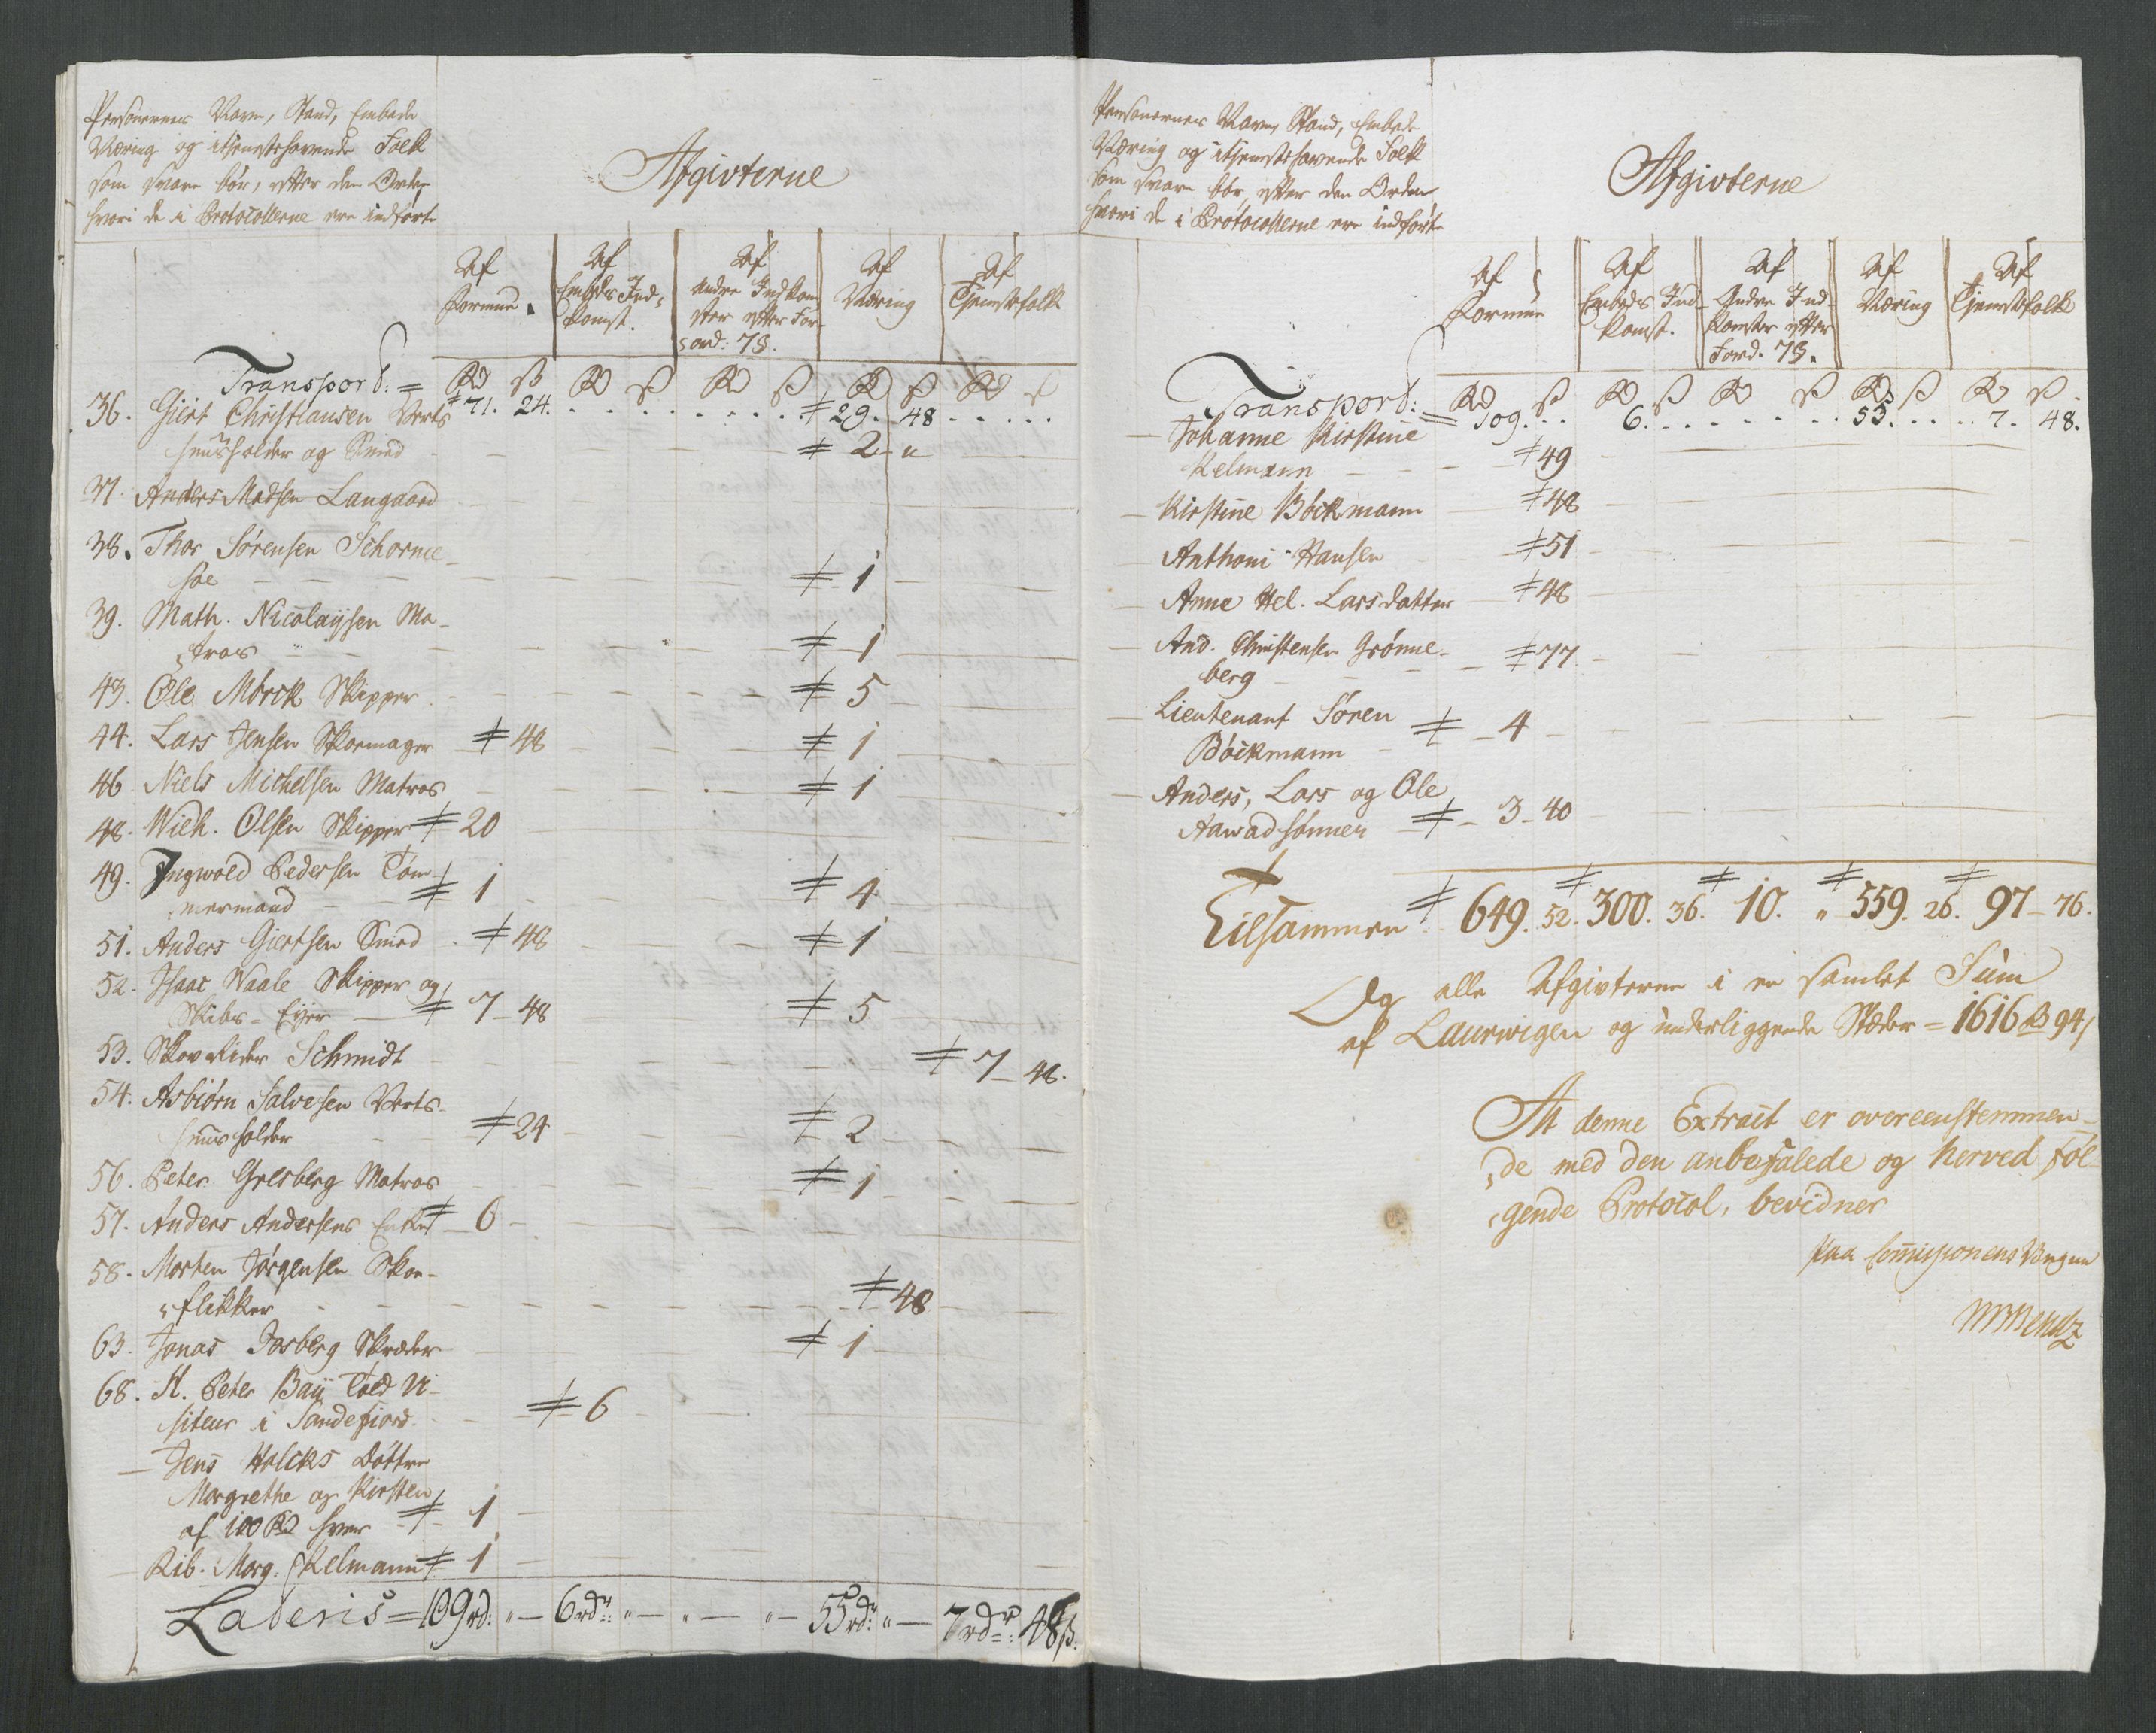 Personernes Navn, Stand, Embede
Næring og itienestehavende Folk
som svare bör, efter den Orden
hvori de i Protocollerne ere indförte
Afgivterne
Af Formue.
Af Embeds Ind-komst.
Af Andre Indkom-ster efter For-ord: 7§.
Af Næring
Af Tjenestefolk
Rd ß Rd ß Rd ß Rd ß Rd ß
Transport: = 71. 24. 29. 48
36. Giert Christiansen Verts
huusholder og Smed 2 "
37. Anders Madsen Langaard
38. Thor Sörensen Schorme-
hoe 1
39. Math. Nicolaysen Ma-
tros 1
43. Ole Mörck Skipper 5
44. Lars Jensen Skomager 48 1
46 Niels Michelsen Matros 1
48. Wilh. Olsen Skipper 20
49. Ingwold Pedersen Töm-
mermand 1 4
51. Anders Giertsen Smed 48 1
52. Isaac Waale Skipper og
Skibs-Eyer 7-48 5
53. Skovrider Schmidt 7-48.
54. Asbiörn Salvesen Verts-
huusholder 24 2
56. Peter Gresberg Matros 1
57. Anders Andersens Enke 6
58. Morten Jörgensen Skoe-
flikker 48
63. Jonas Fosberg Skræder 1
68. H. Peter Baÿ Told Vi-
siteur i Sandefiord 6
- Jens Holcks Döttre
Margrethe og Kirsten
af 100 Rd hver 1
- Rib. Marg. Kelmann 1
Lateris = 109 rd: " - 6 rdr: " - " - " - 55 rdr: " - 7 rdr: 48 ß.
Personernes Navn, Stand, Embede
Næring og itjenestehavende Folk
som svare bör, efter den Orden
hvori de i Protocollerne ere indförte
Afgivterne
Af Formue
Af Embeds Ind-komst.
Af Andre Ind-komster efter Ford. 7§.
Af Næring
Af Tjenestefolk
Rd ß Rd ß Rd ß Rd ß Rd ß
Transport: = 109. 6. 55. 7. 48.
- Johanne Kirstine
Kelmann 49
- Kirstine Böckmann 48
Anthoni Hansen 51
- Anne Hel. Larsdatter 48
- And. Christensen Grönne-
berg 77
- Lieutenant Sören
Böckmann 4
- Anders, Lars og Ole
Aawadsönner 3-40
Tilsammen 649. 52. 300. 36. 10. " 559. 26. 97-76.
Og alle Afgivterne i en samlet Sum
af Laurwigen og underliggende Stæder = 1616 Rd 94 ß
At denne Extract er overeenstemmen-
de med den anbefalede og herved föl-
gende Protocol, bevidner
paa Commissionens Vegne
Bendz